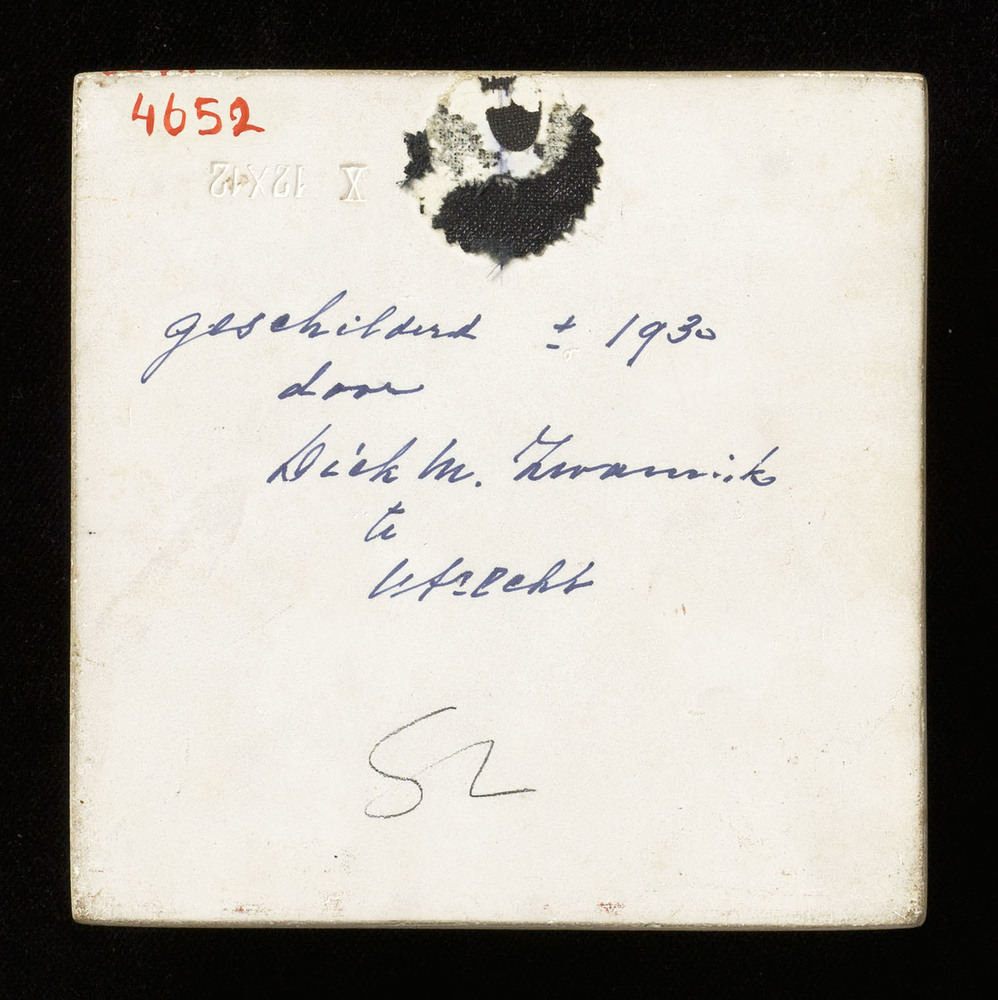 4652
X 12X12
geschilderd ± 1930
door
Dick M. Zwamik
te
Utrecht
52